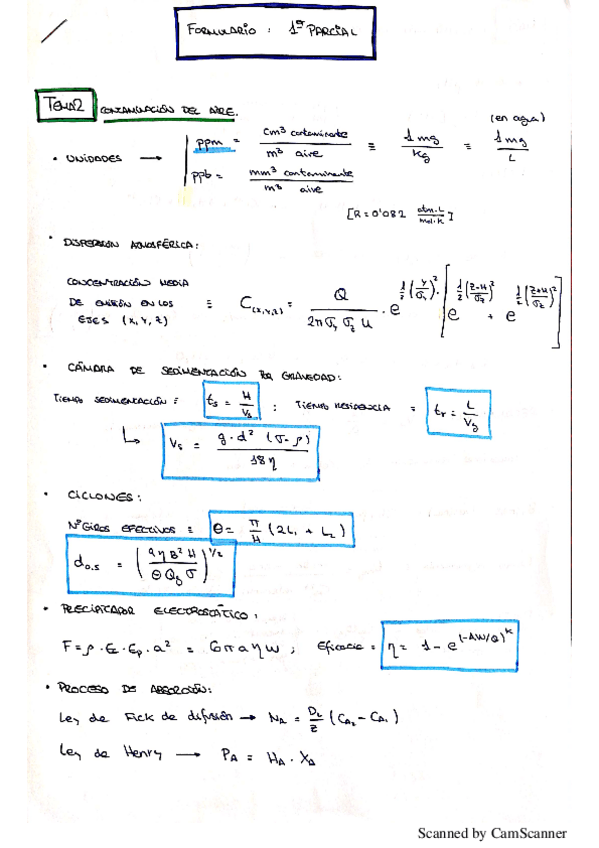 FORMULARIO : 1er PARCIAL
TEMA 2 CONTAMINACIÓN DEL AIRE.
(en agua)
• UNIDADES → ppm = cm³ contaminante / m³ aire ≡ 1 mg / kg ≡ 1 mg / L
ppb = mm³ contaminante / m³ aire
[R = 0'082 atm·L / mol·K]
• DISPERSIÓN ATMOSFÉRICA:
CONCENTRACIÓN MEDIA
DE EMISIÓN EN LOS
EJES (X, Y, Z) ≡ C(x,y,z) = Q / 2π σy σz u · e^{1/2 (y/σy)²} · [e^{1/2 (z-H/σz)²} + e^{1/2 (z+H/σz)²}]
• CÁMARA DE SEDIMENTACIÓN POR GRAVEDAD:
TIEMPO SEDIMENTACIÓN = ts = H / Vs ; TIEMPO RESIDENCIA = tr = L / Vg
↳ Vs = g·d² (σ-ρ) / 18η
• CICLONES:
Nº GIROS EFECTIVOS = θ = π/H (2L₁ + L₂)
d0,5 = (9 η B² H / θ Qg σ)^{1/2}
• PRECIPITADOR ELECTROSTÁTICO:
F = ρ·Ec·Ep·a² = 6πaηw ; Eficacia = η = 1 - e^{(-AW/Q)^k}
• PROCESO DE ABSORCIÓN:
Ley de Fick de difusión → NA = DL / z (CA₂ - CA₁)
Ley de Henry → PA = HA · XA
Scanned by CamScanner